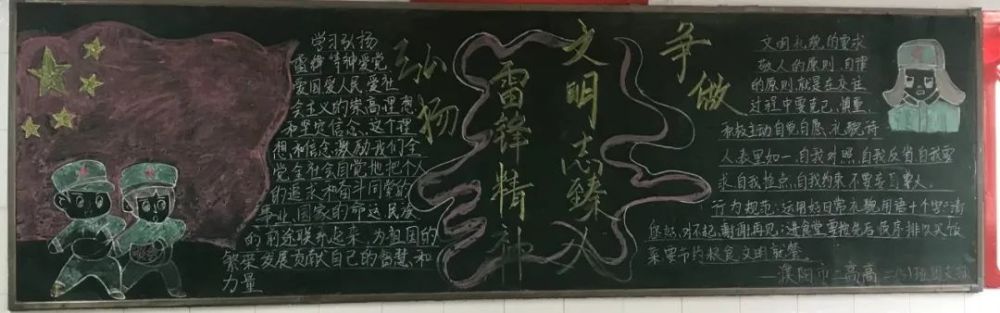 学习弘扬
雷锋精神爱党
爱国爱人民爱社
会主义的崇高理想
和坚定信念、这个理
想和信念激励我们全
党全社会自觉地把个人
的追求和奋斗同党的
事业、国家的命运民族
的前途联系起来,为祖国的
繁荣发展贡献自己的智慧和
力量
弘扬
雷锋精神
文明志
争做
文明礼貌的要求
敬人的原则,自律
的原则,就是在交往
过程中要克己、慎重、
积极主动自觉自愿、礼貌待
人表里如一,自我对照,自我反省自我要
求自我检点,自我约束不要
行为规范:运用好日常礼貌用语十个字:请
您好、对不起、谢谢再见;进食堂要按先后顺序排队买饭
菜要节约粮食文明就餐。
濮阳市二高高二